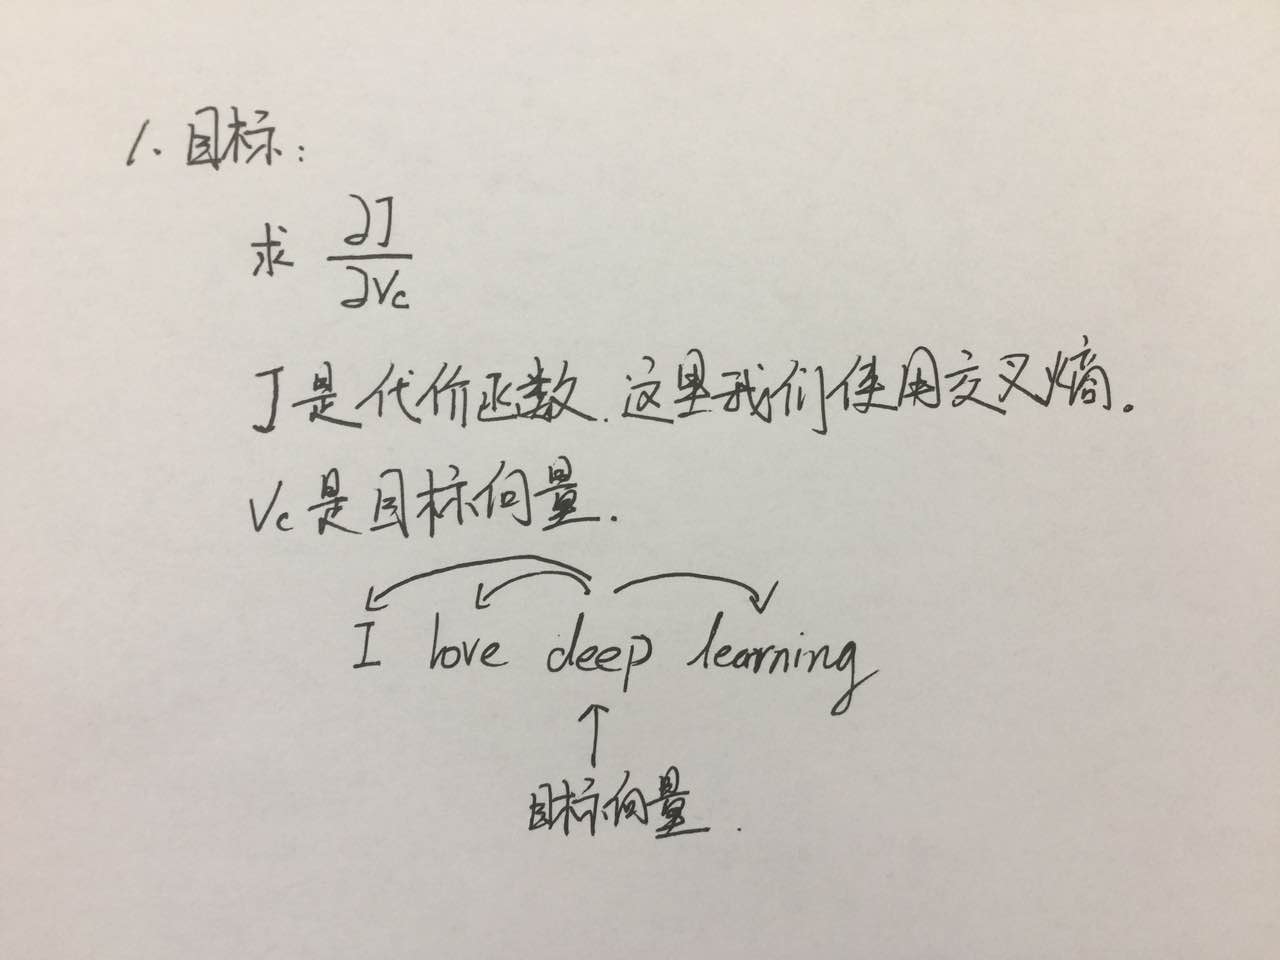 1. 目标:
求 ∂J/∂Vc
J是代价函数.这里我们使用交叉熵.
Vc是目标向量.
I love deep learning
目标向量.